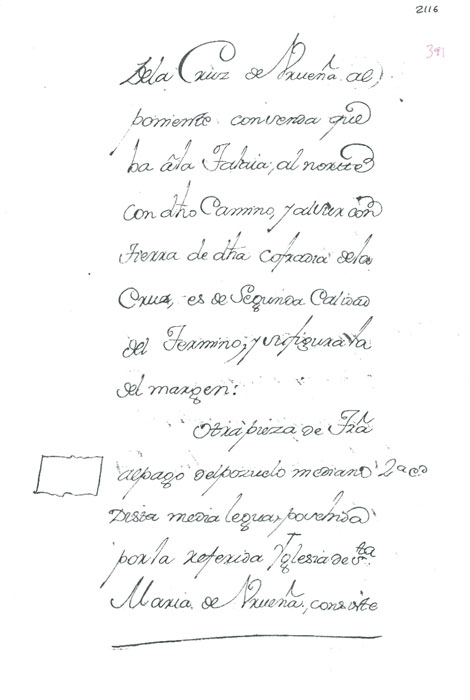 2116
391
dela Cruz de Vrueña al
poniente con venda que
ba âla Fatuia, al norte
con dho Camino, y alvur con
tierra de dha cofradia dela
Cruz, es de Segunda Calidad
del Termino; y su figura la
del margen:
Otra pieza de Tra
al pago del pozuelo mediano 2a Cd
Dista media legua, posehida
por la referida Yglesia de Sta
Maria de Vrueña, consiste